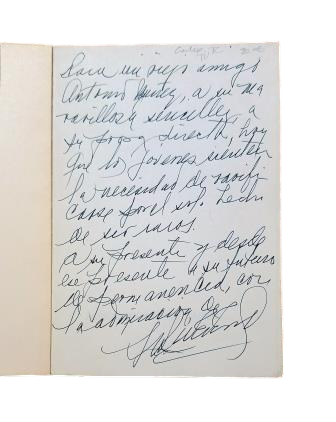 Para un viejo amigo
Antonio, a su ma
ravillosa y sencillez, a
su prosa directa, hoy
que los jóvenes sienten
la necesidad de
carse por el solo hecho
de ser raros.
a su presente y desde
ese presente a su futuro
de permanencia, con
la admiración de